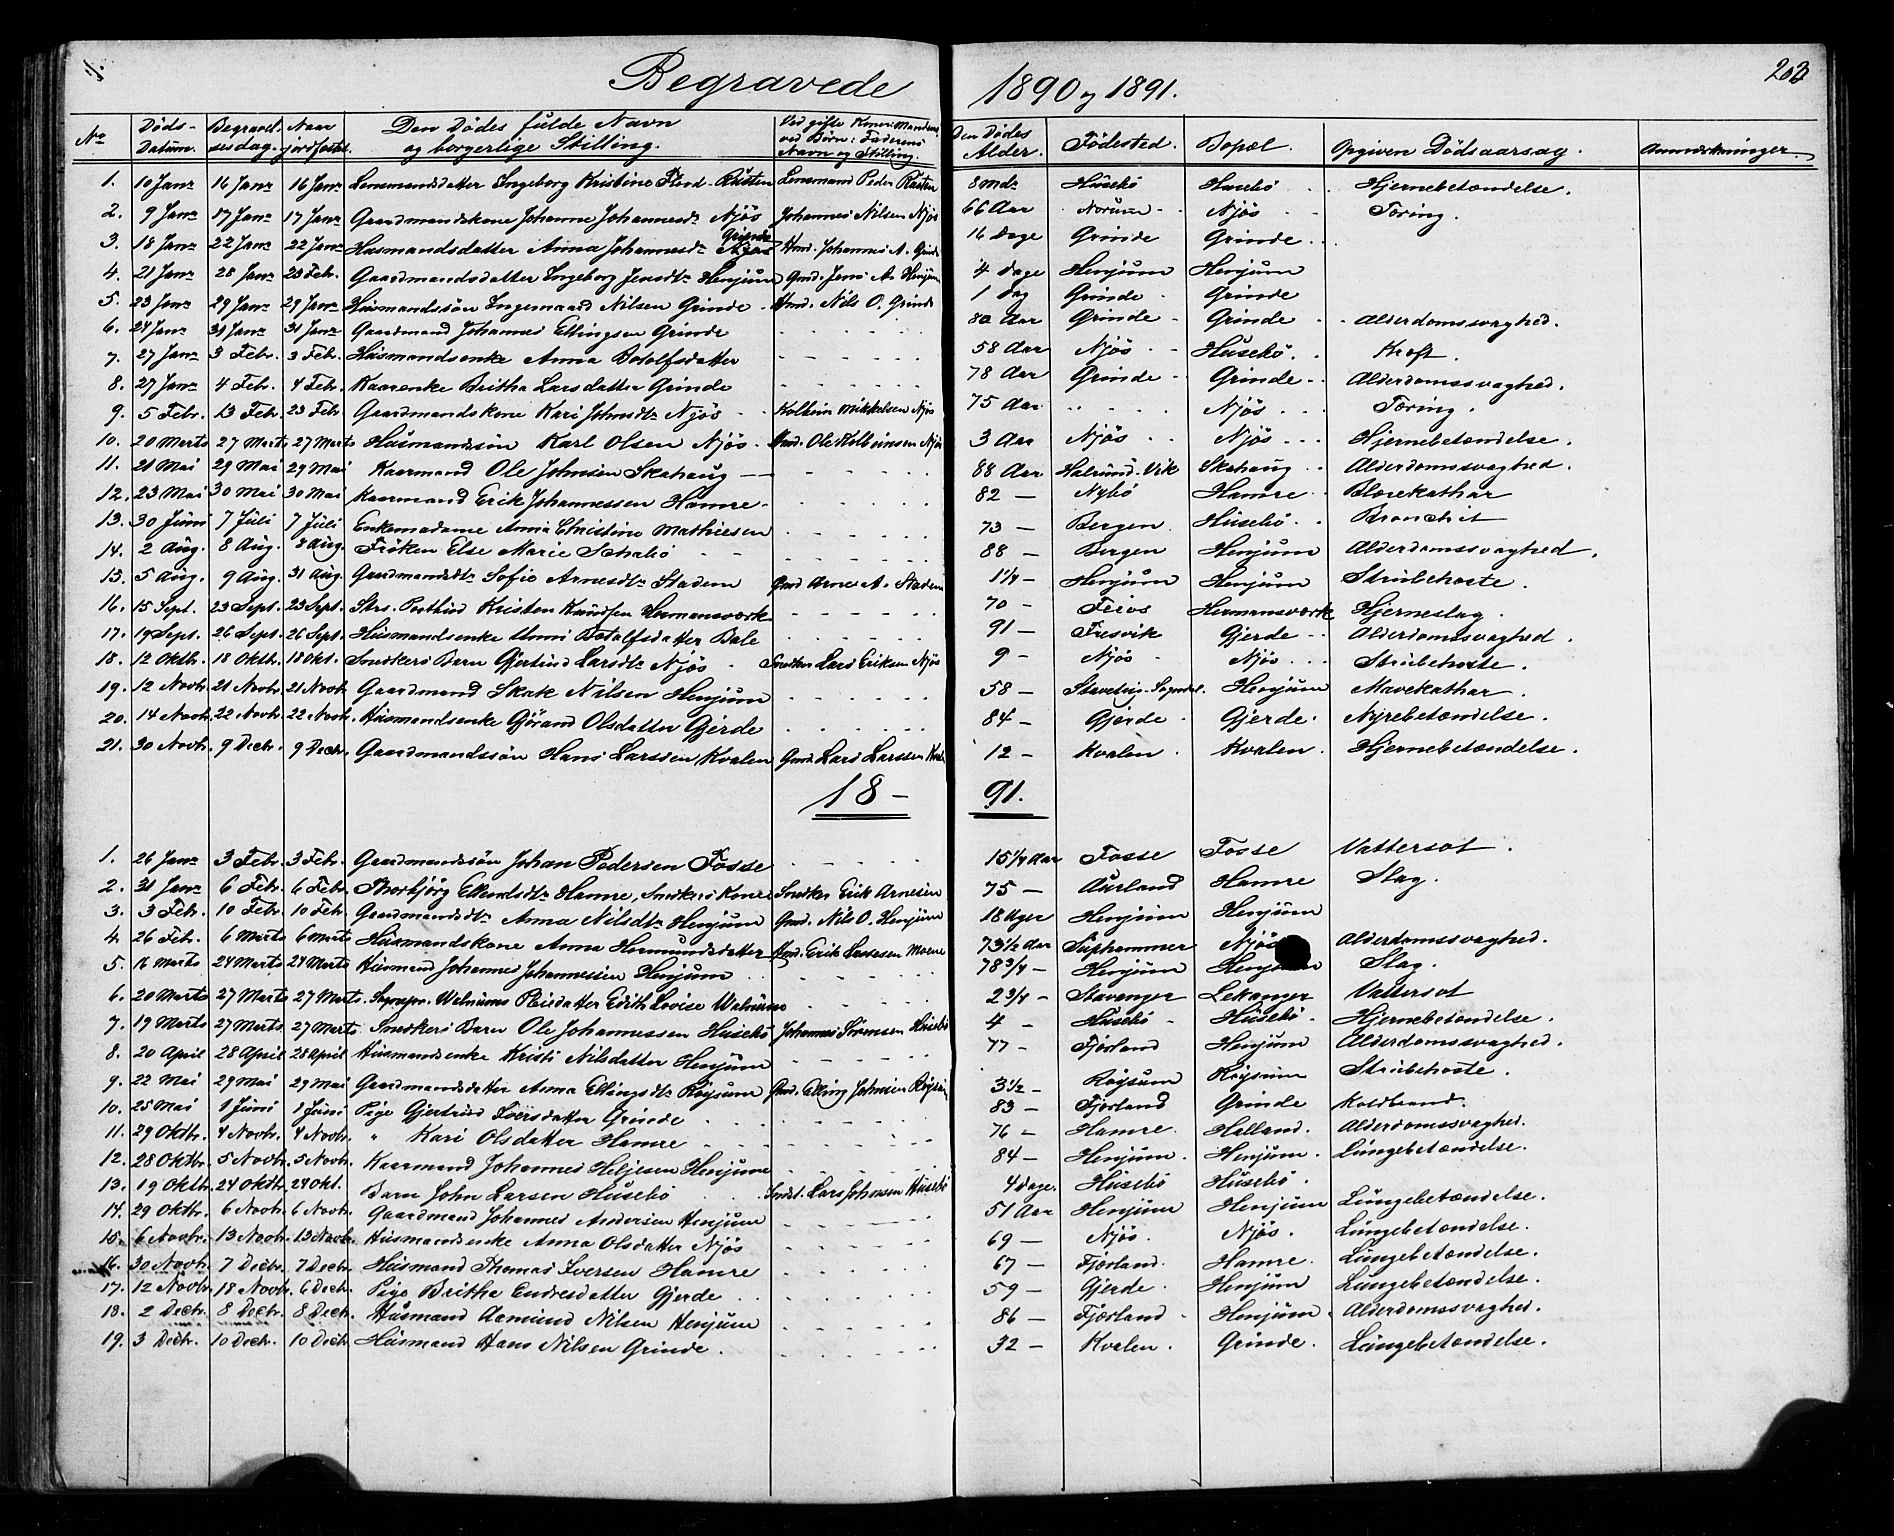 Begravede 1890 og 1891. 203
No Døds-Datum. Begravelsesdag. Naar jordfæstet. Den Dødes fulde Navn og borgerlige Stilling. Ved gifte Koner: Mandens ved Børn: Faderens Navn og Stilling. Den Dødes Alder. Fødested. Bopæl. Opgiven Dødsaarsag. Anmærkninger.
1. 10 Janr 16 Janr 16 Janr Lensmandsdatter Ingeborg Kristine Rusten Lensmand Peder Rusten 8 mdr Husebø Husebø Hjernebetændelse.
2. 9 Janr 17 Janr 17 Janr Gaardmandskone Johanne Johannesdr Njøs Johannes Nilsen Njøs 66 Aar Norum Njøs Tæring.
3. 18 Janr 22 Janr 22 Janr Husmandsdatter Anna Johannesdr Grinde Hmd. Johannes A. Grinde 16 Dage Grinde Grinde
4. 21 Janr 28 Janr 23 Feb. Gaardmandsdatter Ingeborg Jensdtr Henjum Gmd. Jens A. Henjum 4 Dage Henjum Henjum
5. 23 Janr 29 Janr 29 Janr Husmandssøn Ingemard Nilsen Grinde Hmd. Nils O. Grinde 1 Dag Grinde Grinde
6. 24 Janr 31 Janr 31 Janr Gaardmand Johannes Ellingsen Grinde 80 Aar Grinde Grinde Alderdomssvaghed.
7. 27 Janr 3 Febr. 3 Febr. Husmandsenke Anna Botolfsdatter 58 Aar Njøs Husebø. Kræft.
8. 27 Janr 4 Febr. 4 Febr. Kaarenke Britha Larsdatter Grinde 78 Aar Grinde Grinde Alderdomssvaghed.
9. 5 Febr. 13 Febr. 23 Febr. Gaardmandskone Kari Johnsdtr Njøs Kolbein Mikkelsen Njøs 75 Aar Njøs Tæring.
10. 20 Marts 27 Marts 27 Marts Husmandssøn Karl Olsen Njøs Hmd. Ole Kolbeinsen Njøs 3 Aar Njøs Njøs Hjernebetændelse.
11. 21 Mai 29 Mai 29 Mai Kaarmand Ole Johnsen Skahaug 88 Aar Vik Skahaug Alderdomssvaghed.
12. 23 Mai 30 Mai 30 Mai Kaarmand Erik Johannessen Hamre 82 — Nybø Hamre Blærekathar
13. 30 Juni 7 Juli 7 Juli Enkemadame Anna Christine Mathiesen 73 — Bergen Husebø Bronchit
14. 2 Aug. 8 Aug. 8 Aug. Frøken Else Marie Schabø 88 — Bergen Henjum Alderdomssvaghed.
15. 5 Aug. 9 Aug. 31 Aug. Gaardmandsdtr Sofie Arnesdtr Stadem Gmd Arne A. Stadem 1 1/4 — Henjum Henjum Strubehoste.
16. 15 Sept. 23 Sept. 23 Sept. Kristen Knudsen Hermansværk 70 — Feios Hermansværk Hjerneslag.
17. 19 Sept. 26 Sept. 26 Sept. Husmandsenke Unni Botolfsdatter Bale 91 — Fresvik Gjerde Alderdomssvaghed.
18. 12 Oktb. 18 Oktb. 18 Okt. Snedkers Barn Gjertrud Larsdtr Njøs Snedker Lars Eriksen Njøs 9 — Njøs Njøs Strubehoste.
19. 12 Novb. 21 Novb. 21 Novb. Gaardmand Skak Nilsen Henjum 58 — Sogndal. Henjum Mavekathar.
20. 14 Novb. 22 Novb. 22 Novb. Husmandsenke Gjørand Olsdatter Gjerde 84 — Gjerde Gjerde Nyrebetændelse.
21. 30 Novb. 9 Decb. 9 Decb. Gaardmandssøn Hans Larssen Kvalen Gmd. Lars Larssen 12 — Kvalen. Kvalen. Hjernebetændelse.
18 — 91.
1. 26 Janr 3 Febr. 3 Febr. Gaardmandssøn Johan Pedersen Fosse 15 1/4 Aar Fosse Fosse Vattersot.
2. 31 Janr 6 Febr. 6 Febr. Thorbjørg Ellendsdtr Hamre, Snedkers Kone Snedker Erik Arnesen 75 — Aurland Hamre Slag.
3. 3 Feb. 10 Feb. 10 Feb. Gaardmandsdtr Anna Nilsdtr Henjum Gmd. Nils O. Henjum 18 Uger Henjum Henjum
4. 26 Feb. 6 Marts 6 Marts Husmandskone Anna Hermundsdatter Hmd. Erik Larssen Moene 73 1/2 Aar Suphammer Njøs Alderdomssvaghed.
5. 16 Marts 24 Marts 24 Marts Husmand Johannes Johannessen Henjum 78 3/4 — Henjum Henjum Slag.
6. 20 Marts 27 Marts 27 Marts. Sognepr. Walnums Pleiedatter Edith Lovise Walnum 2 3/4 — Stavanger Lekanger Vattersot
7. 19 Marts 27 Marts 27 Marts Snedkers Barn Ole Johannessen Husebø Johannes Sørensen Husebø 4 — Husebø Husebø Hjernebetændelse.
8. 20 April 28 April 28 April Husmandsenke Kristi Nilsdatter Henjum 77 — Fjærland Henjum Alderdomssvaghed.
9. 22 Mai 29 Mai 29 Mai Gaardmandsdatter Anna Ellingsdtr Røysum Gmd. Elling Johnsen Røysum 3 1/2 — Røysum Røysum Strubehoste.
10. 25 Mai 1 Juni 1 Juni Pige Gjertrud Iversdatter Grinde 83 — Fjærland Grinde Koldbrand.
11. 29 Oktb. 4 Novb. 4 Novb. " Kari Olsdatter Hamre 76 — Hamre. Halland. Alderdomssvaghed.
12. 28 Oktbr. 5 Novb. 5 Novb. Kaarmand Johannes Heljesen Henjum 84 — Henjum. Henjum. Lungebetændelse.
13. 19 Oktb. 24 Oktb. 24 Okt. Barn John Larsen Husebø Lars Johnsen Husebø 4 Dage. Husebø Husebø.
14. 29 Oktbr. 6 Novb. 6 Novb. Gaardmand Johannes Andersen Henjum 51 Aar Henjum Henjum Lungebetændelse.
15. 6 Novbr. 13 Novb. 13 Novb. Husmandsenke Anna Olsdatter Njøs 69 — Njøs. Njøs. Lungebetændelse.
16. 30 Novb. 7 Decb. 7 Decb. Husmand Thomas Iversen Hamre 67 — Fjærland. Hamre. Lungebetændelse.
17. 12 Novb. 18 Novb. 6 Decb. Pige Britha Endresdatter Gjerde 59 — Gjerde. Henjum Lungebetændelse.
18. 2 Decb. 8 Decb. 8 Decb. Husmand Aamund Nilsen Henjum 86 — Fjærland Henjum. Alderdomssvaghed.
19. 3 Decb. 10 Decb. 10 Decb. Husmand Hans Nilsen Grinde. 32 — Kvalen. Grinde. Lungebetændelse.